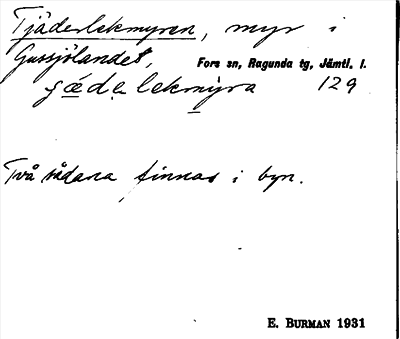 Tjäderlekmyren, myr i
Gussjölandet, Fors sn, Ragunda tg, Jämtl. l.
129
Två sådana finnas i byn.
E. BURMAN 1931